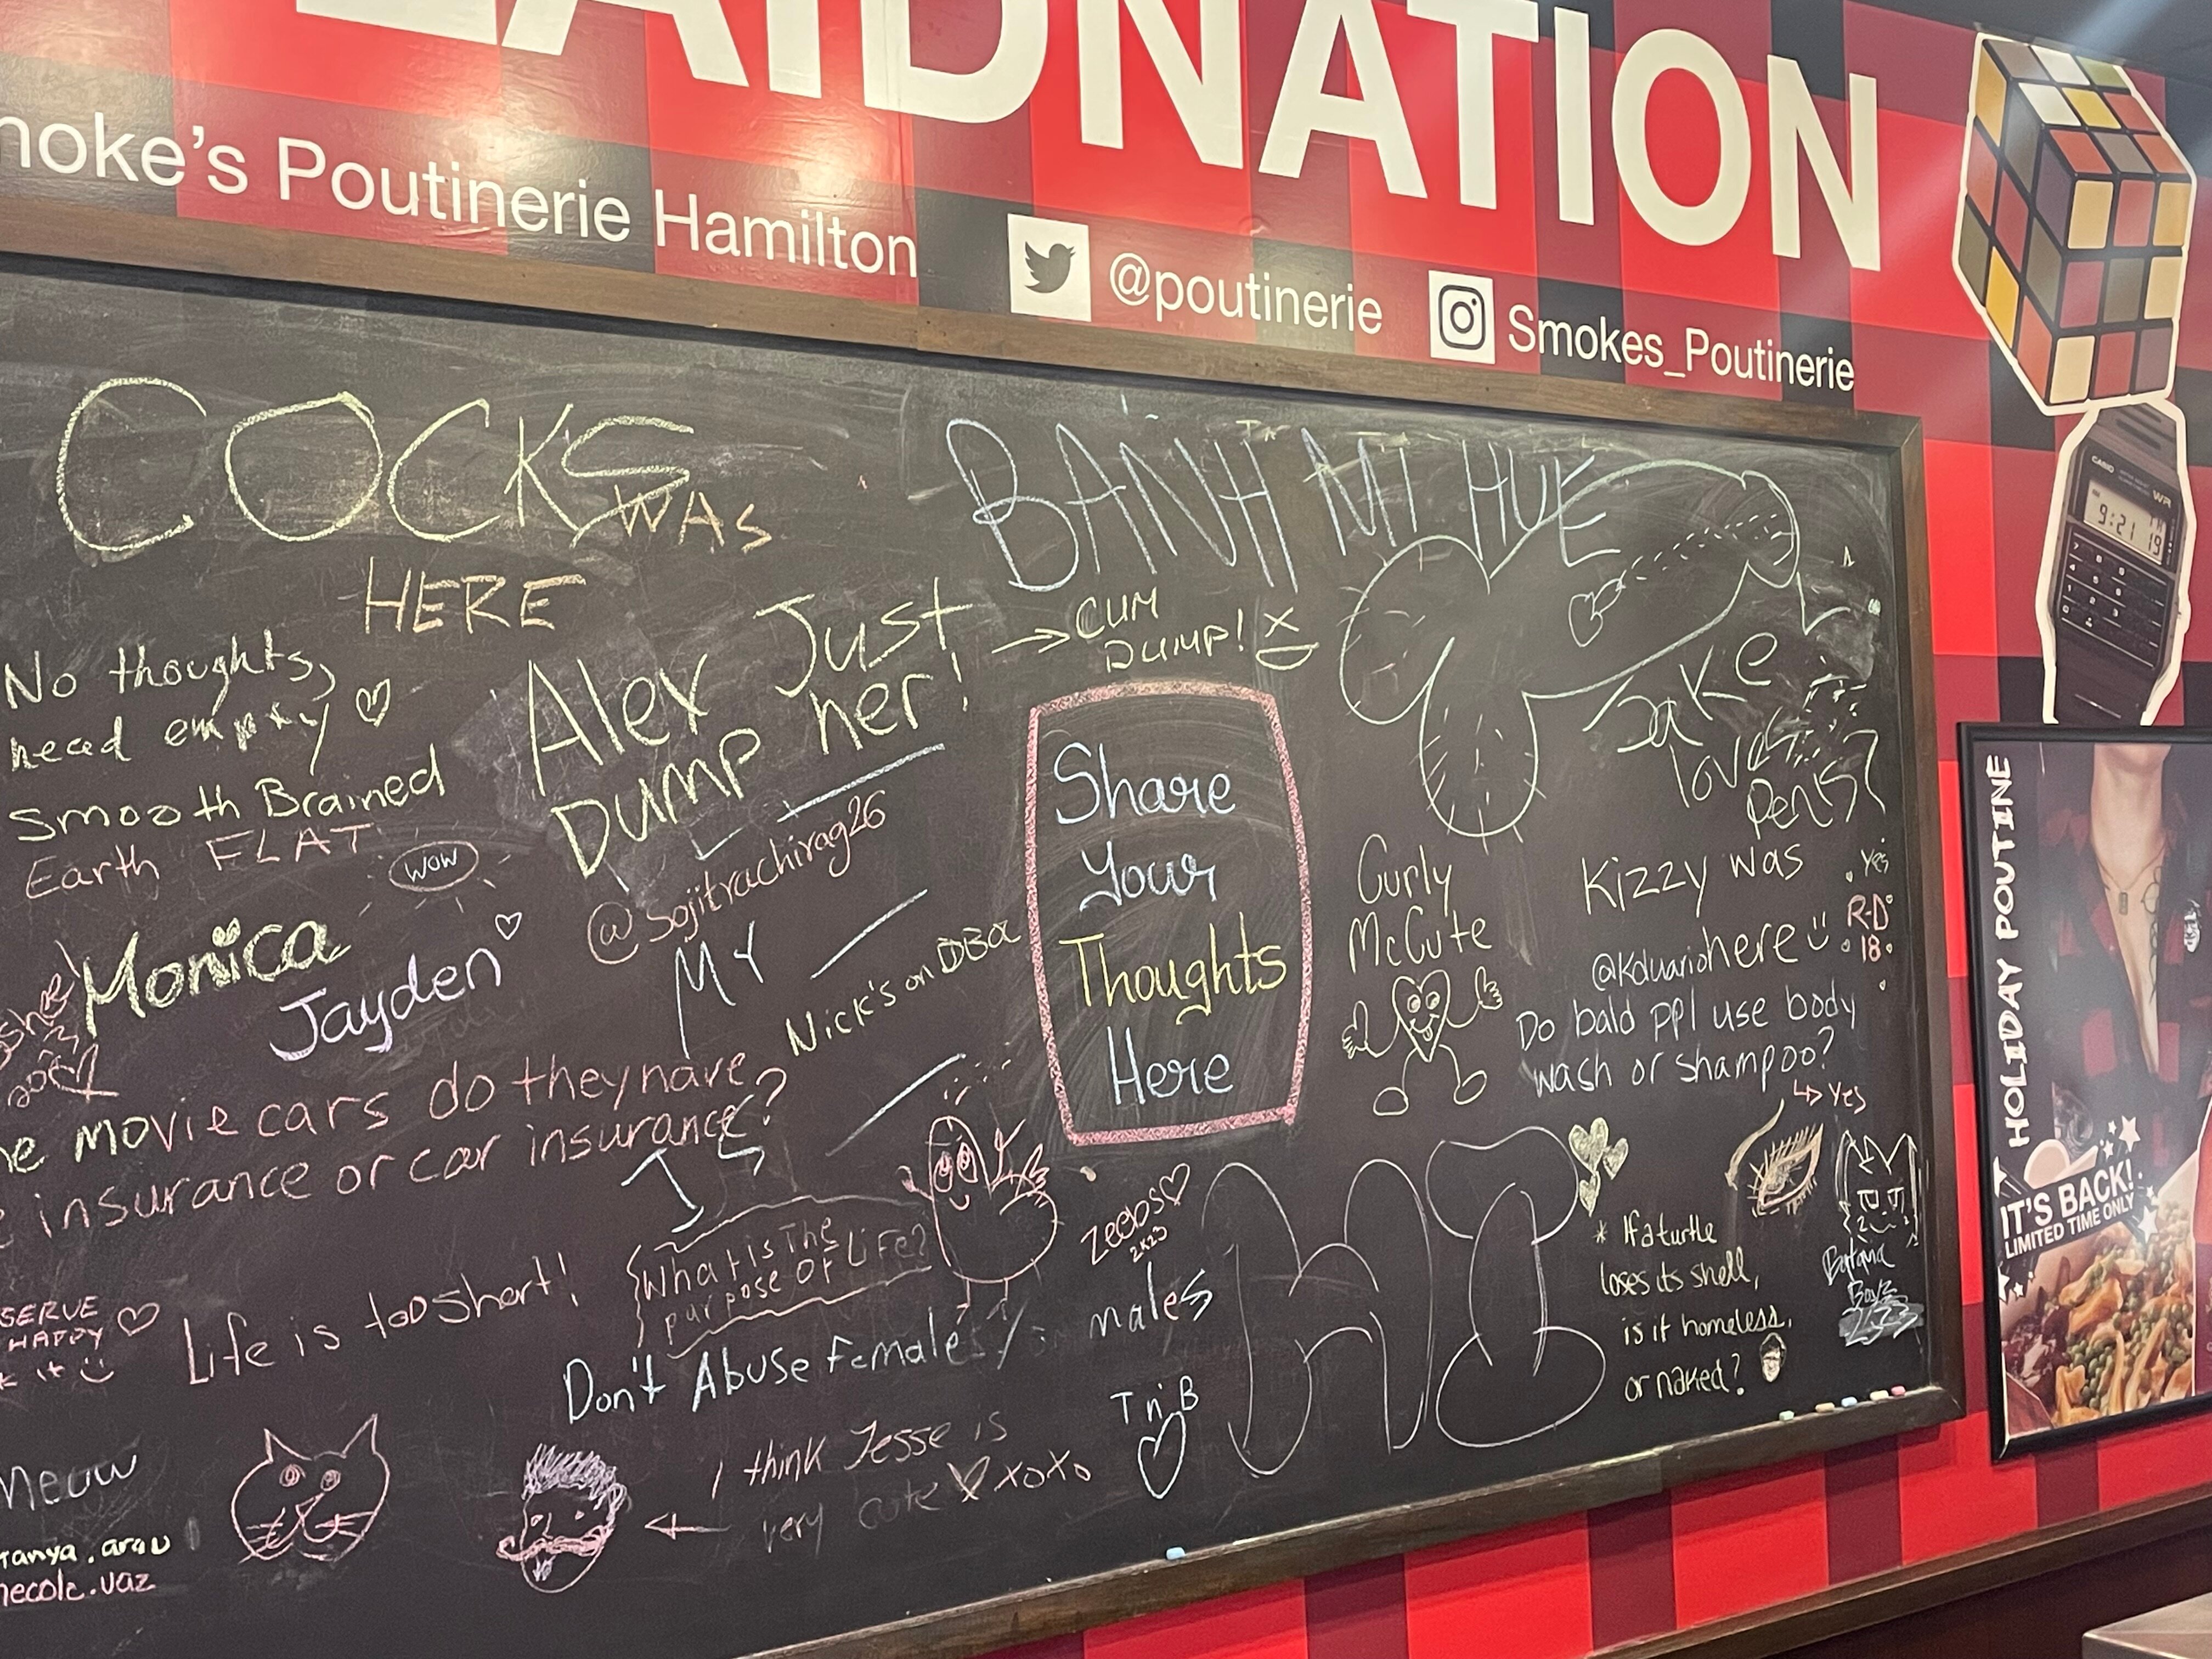 PLAIDNATION
Smoke's Poutinerie Hamilton
@poutinerie
Smokes_Poutinerie
COCKS
WAS
HERE
No thoughts,
head empty
Smooth Brained
Earth FLAT
WOW
Monica
Jayden
Alex Just
DUMP her!
CUM
DUMP!
@Sojitrachirag26
MY
Nick's on
BANH MI HUE
Jake
loves
penis
Share
Your
Thoughts
Here
Curly
McCute
Kizzy was
here
@Kduario
Yes
R-D
18
Do bald ppl use body
wash or shampoo?
Yes
movie cars do they have
insurance or car insurance?
IS
What is The
purpose of Life?
Zeebs
2K23
Life is too short!
Don't Abuse females / males
SERVE
HAPPY
HI
* If a turtle
loses its shell,
is it homeless,
or naked?
Boys
T n' B
I think Jesse is
very cute xoxo
Meow
tanya.arau
necole.vaz
CASIO
WR
9:21 19
HOLIDAY POUTINE
IT'S BACK!
LIMITED TIME ONLY